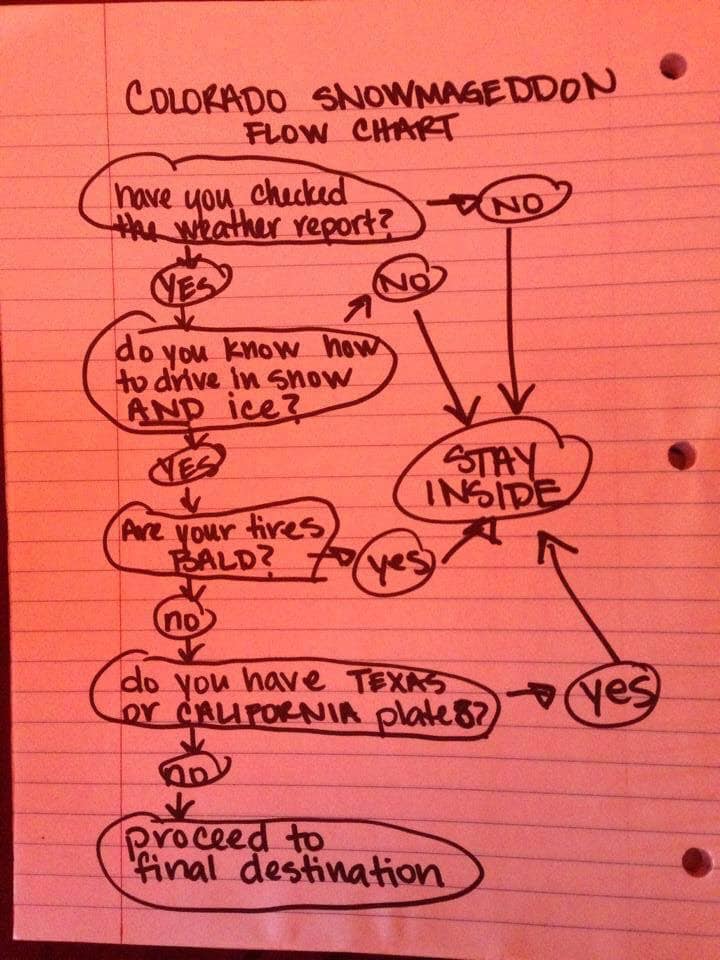 COLORADO SNOWMAGEDDON
FLOW CHART
have you checked
the weather report?
NO
YES
NO
do you know how
to drive in snow
AND ice?
YES
STAY
INSIDE
Are your tires
BALD?
yes
no
do you have TEXAS
or CALIFORNIA plates?
yes
no
proceed to
final destination